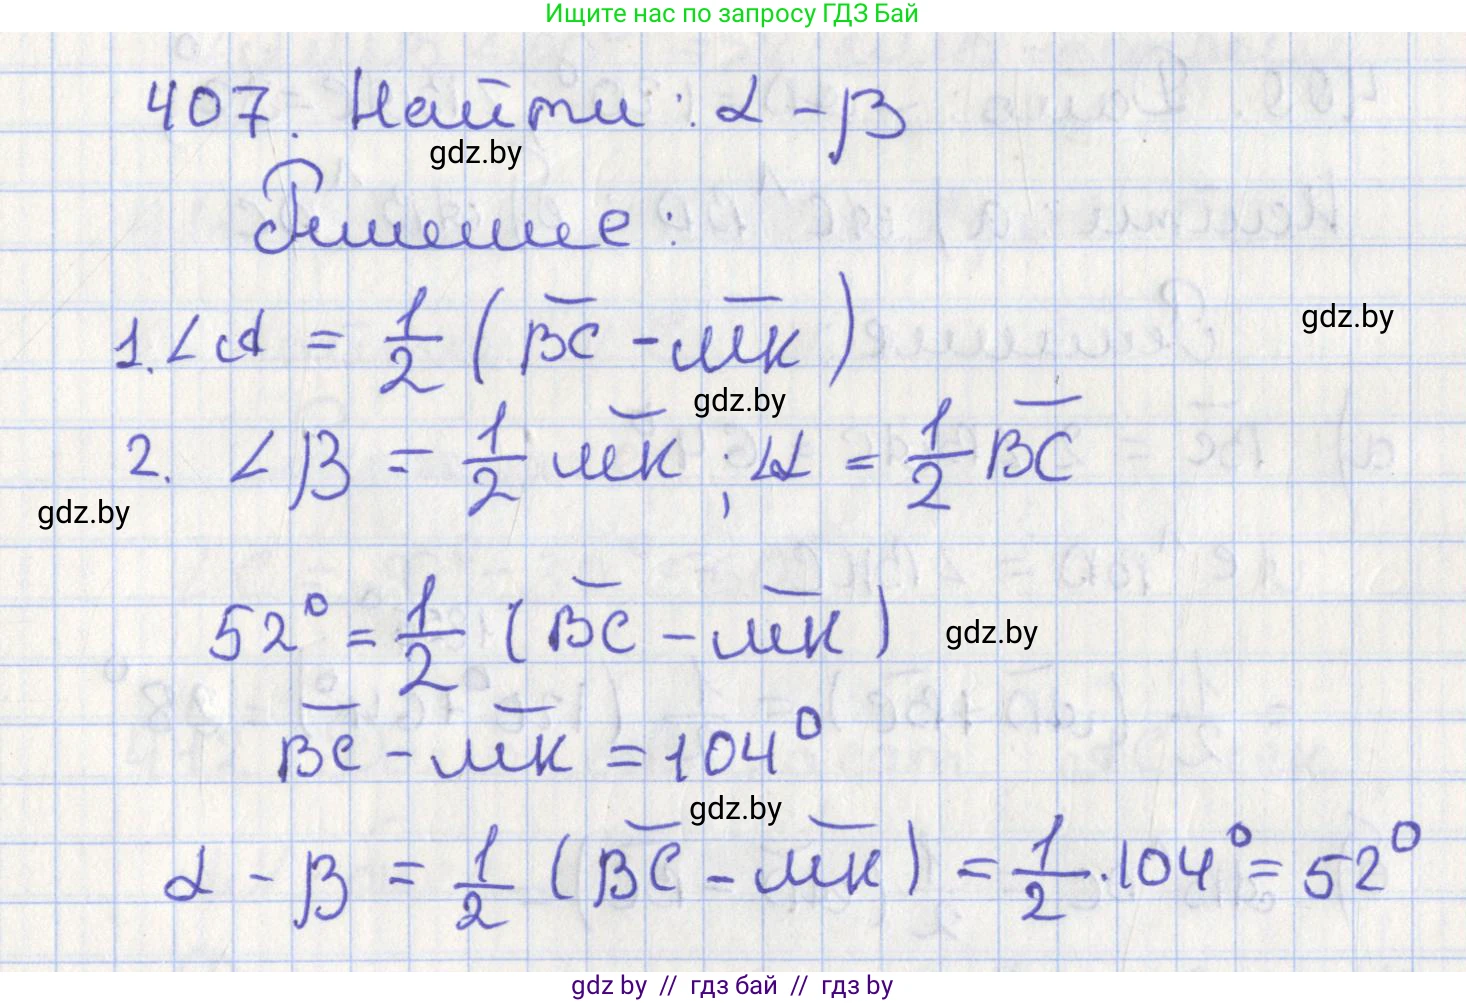 Ищите нас по запросу ГДЗ Бай
407. Найти: α - β
gdz.by
Решение:
1. ∠A = 1/2 (BC - MK)
gdz.by
gdz.by
2. ∠β = 1/2 MK ; ∠α = 1/2 BC
gdz.by
52° = 1/2 (BC - MK)
gdz.by
BC - MK = 104°
gdz.by
α - β = 1/2 (BC - MK) = 1/2 · 104° = 52°
gdz by // гдз бай // гдз by